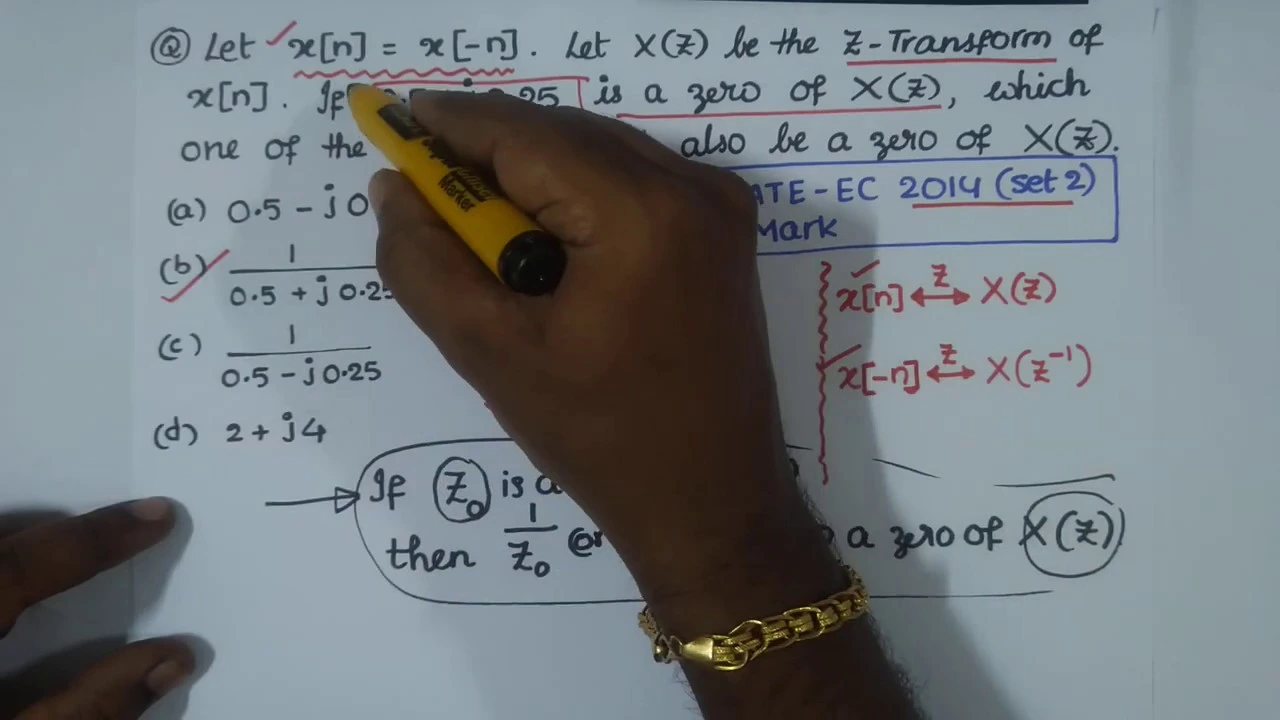 Q Let x[n] = x[-n]. Let X(Z) be the Z-Transform of
x[n]. If 0.25 is a zero of X(Z), which
one of the also be a zero of X(Z).
ATE-EC 2014 (set 2)
Mark
(a) 0.5 - j 0
(b) 1
0.5 + j 0.25
(c) 1
0.5 - j 0.25
(d) 2 + j4
x[n] ⟷ X(Z)
Z
x[-n] ⟷ X(Z⁻¹)
Z
If Z₀ is a
then 1/Z₀ or a zero of X(Z)
Marker